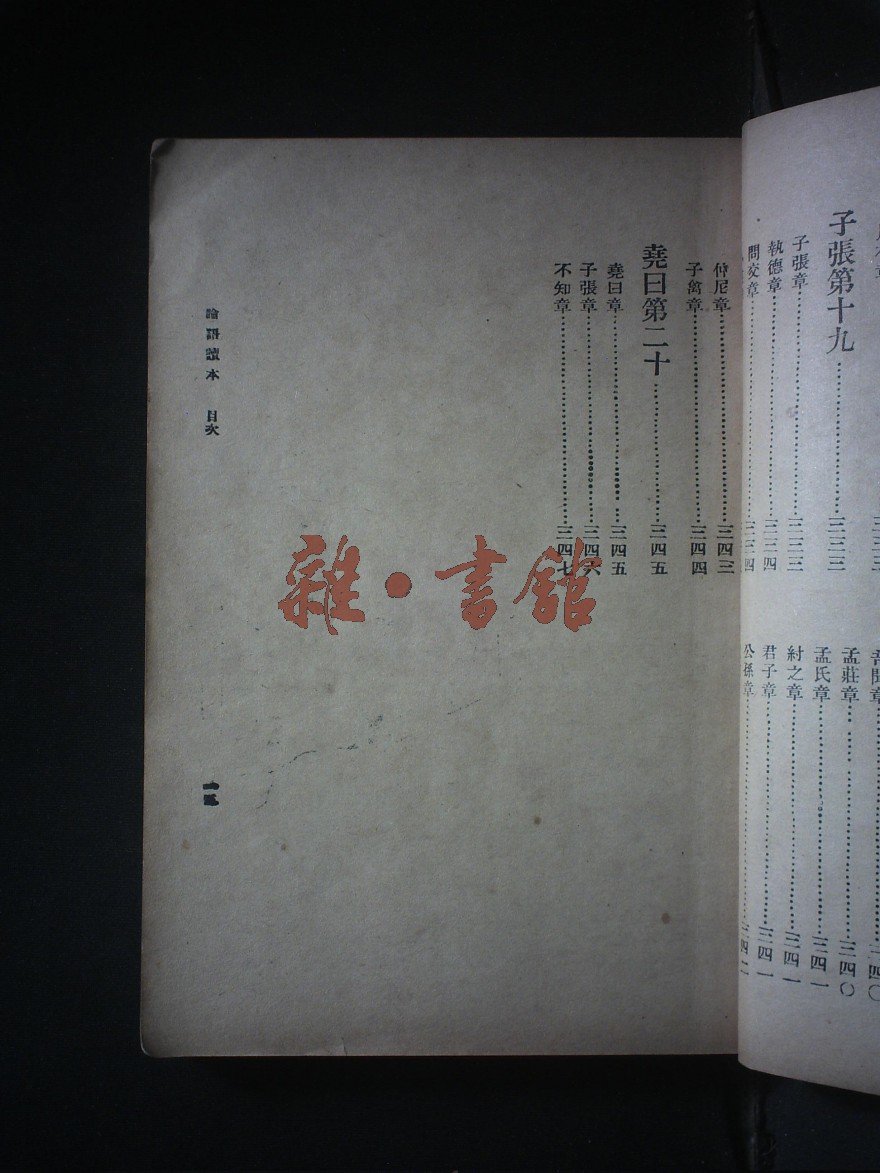 子張第十九……三三三
子張章……三三三
執德章……三三四
問交章……三三四
孟莊章……三四〇
孟氏章……三四一
紂之章……三四一
君子章……三四一
公孫章……三四二
仲尼章……三四三
子禽章……三四四
堯曰第二十……三四五
堯曰章……三四五
子張章……三四六
不知章……三四七
論語讀本 目次
雜·書館